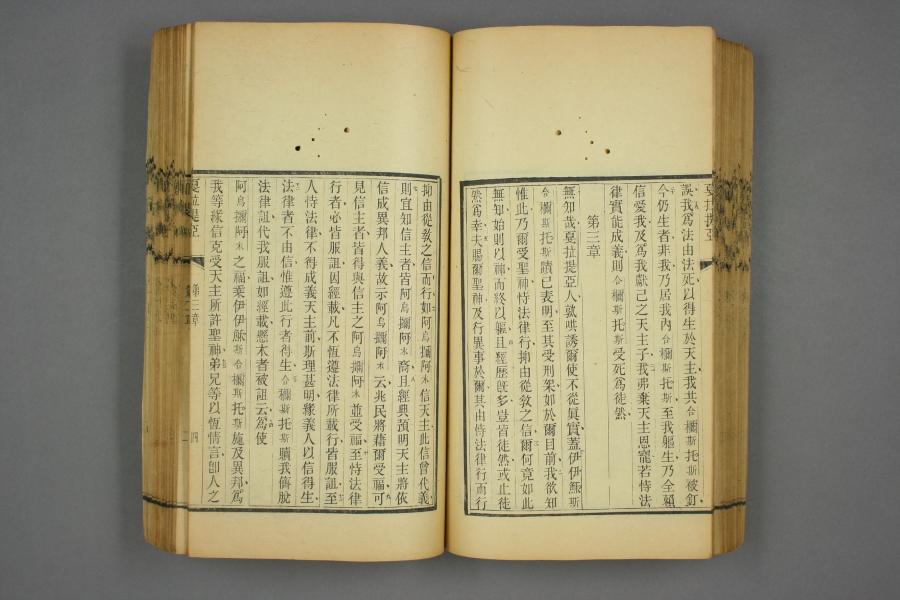 誤我爲法由法死以得生於天主我共合攔斯托斯被釘
今仍生者非我乃居我內合攔斯托斯至我軀生乃全賴
信愛我及爲我獻己之天主子我弗棄天主恩寵若恃法
律實能成義則合攔斯托斯受死爲徒然
第三章
無知哉戛拉提亞人孰哄誘爾使不從眞實蓋伊伊穌斯
合攔斯托斯蹟已表明至其受刑架如於爾目前我欲知
惟此乃爾受聖神恃法律行抑由從敎之信爾何竟如此
無知始則以神而終以軀且經歷旣多豈皆徒然或止徒
然爲幸夫賜爾聖神及行異事於爾其由恃法律行而行
抑由從敎之信而行如阿烏攔阿木信天主此信曾代義
則宜知信主者皆阿烏攔阿木裔且經典預明天主將依
信成異邦人義故示阿烏攔阿木云兆民將藉爾受福可
見信主者皆得與信主之阿烏攔阿木並受福至恃法律
行者必皆服詛因經載凡不恆遵法律所載行皆服詛至
人恃法律不得成義天主前斯理甚明緣義人以信得生
法律者不由信惟遵此行者得生合攔斯托斯贖我儕脫
法律詛代我服詛如經載懸木者被詛云爲使
阿烏攔阿木之福乗伊伊穌斯合攔斯托斯施及異邦爲
我等緣信克受天主所許聖神弟兄等以恆情言卽人之
戛拉提亞
第三章
四